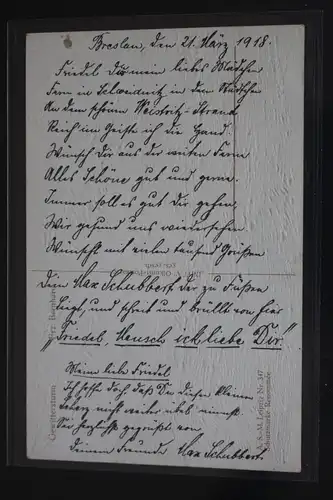 Breslau, den 21. März 1918.
Friedel Du mein liebes Mädchen
Fern in Schweidnitz in dem Städtchen
An dem schönen Weistritz-Strand
Reich im Geiste ich die Hand.
Wünsch Dir aus der weiten Fern
Alles Schöne gut und gerne.
Immer soll es gut Dir gehen,
Wir gesund uns wiedersehen
Wünscht mit vielen tausend Grüßen
Dein Max Schubbert, der zu Füßen
liegt, und schreit und brüllt von hier
"Friedel, Mensch ick liebe Dir"
Meine liebe Friedel
Ich hoffe doch, daß Du diesen kleinen
Scherz nicht weiter übel nimmst.
Sei herzlichst gegrüßt von
Deinem Freunde Max Schubbert.
A. S. M. Leipzig Nr. 347